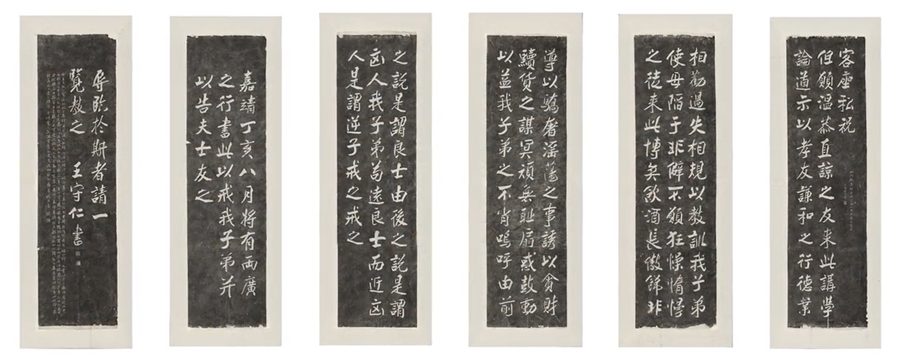 客座私祝
但願溫恭直諒之友来此講學
論道示以孝友謙和之行德業
相勸過失相規以教訓我子弟
使毋陷于非僻不願狂懆惰慢
之徒来此博奕飲酒長傲飾非
導以驕奢淫蕩之事誘以貪財
黷貨之謀冥頑無恥扇惑鼓動
以益我子弟之不肖嗚呼由前
之說是謂良士由後之說是謂
凶人我子弟苟遠良士而近凶
人是謂逆子戒之戒之
嘉靖丁亥八月將有兩廣
之行書此以戒我子弟并
以告夫士友之
辱臨於斯者請一
覽教之 王守仁書